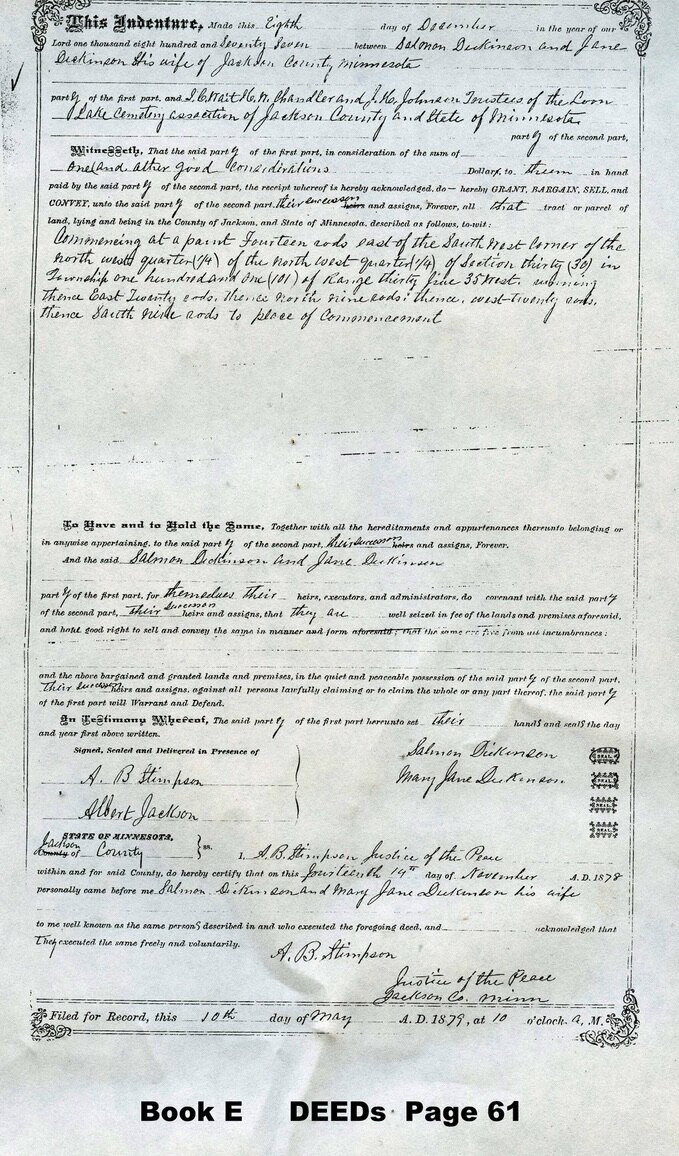 This Indenture, Made this Eighth day of December in the year of our
Lord one thousand eight hundred and Seventy Seven between Salomon Dickinson and Jane
Dickinson His wife of Jackson County Minnesota
party of the first part, and I. C. Wait H. W. Chandler and J. H. Johnson Trustees of the Loon
Lake Cemetery assoction of Jackson County and State of Minnesota.
party of the second part,
Witnesseth, That the said party of the first part, in consideration of the sum of
one and other good considirations Dollars, to them in hand
paid by the said party of the second part, the receipt whereof is hereby acknowledged, do hereby GRANT, BARGAIN, SELL, and
CONVEY, unto the said party of the second part, their successors heirs and assigns, Forever, all that tract or parcel of
land, lying and being in the County of Jackson, and State of Minnesota, described as follows, to-wit:
Commencing at a point Fourteen rods east of the South West Corner of the
north west quarter (1/4) of the North West quarter (1/4) of Section thirty (30) in
Township one hundred and one (101) of Range thirty five 35 West. running
thence East Twenty rods. thence north nine rods: thence, west twenty rods,
thence South nine rods to place of Commencement
To Have and to Hold the Same, Together with all the hereditaments and appurtenances thereunto belonging or
in anywise appertaining, to the said party of the second part, their successors heirs and assigns, Forever.
And the said Salmon Dickinson and Jane Dickinson
party of the first part, for themselves their heirs, executors, and administrators, do covenant with the said party
of the second part, Their successors heirs and assigns, that they are well seized in fee of the lands and premises aforesaid,
and have good right to sell and convey the same in manner and form aforesaid; that the same are free from all incumbrances:
and the above bargained and granted lands and premises, in the quiet and peaceable possession of the said party of the second part,
Their successors heirs and assigns, against all persons lawfully claiming or to claim the whole or any part thereof, the said party
of the first part will Warrant and Defend.
In Testimony Whereof, The said party of the first part hereunto set their hands and seals the day
and year first above written.
Signed, Sealed and Delivered in Presence of
Salmon Dickinson SEAL.
A. B Stimpson
Mary Jane Dickinson SEAL.
Albert Jackson
SEAL.
SEAL.
STATE OF MINNESOTA,
Jackson County of County ss. I, A. B. Stimpson Justice of the Peace
within and for said County, do hereby certify that on this fourteenth 14th day of November A. D. 1878
personally came before me Salmon Dickinson and Mary Jane Dickinson his wife
to me well known as the same persons described in and who executed the foregoing deed, and acknowledged that
They executed the same freely and voluntarily.
A. B. Stimpson
Justice of the Peace
Jackson Co. Minn
Filed for Record, this 10th day of May A. D. 1879, at 10 o'clock A, M.
Book E DEEDs Page 61